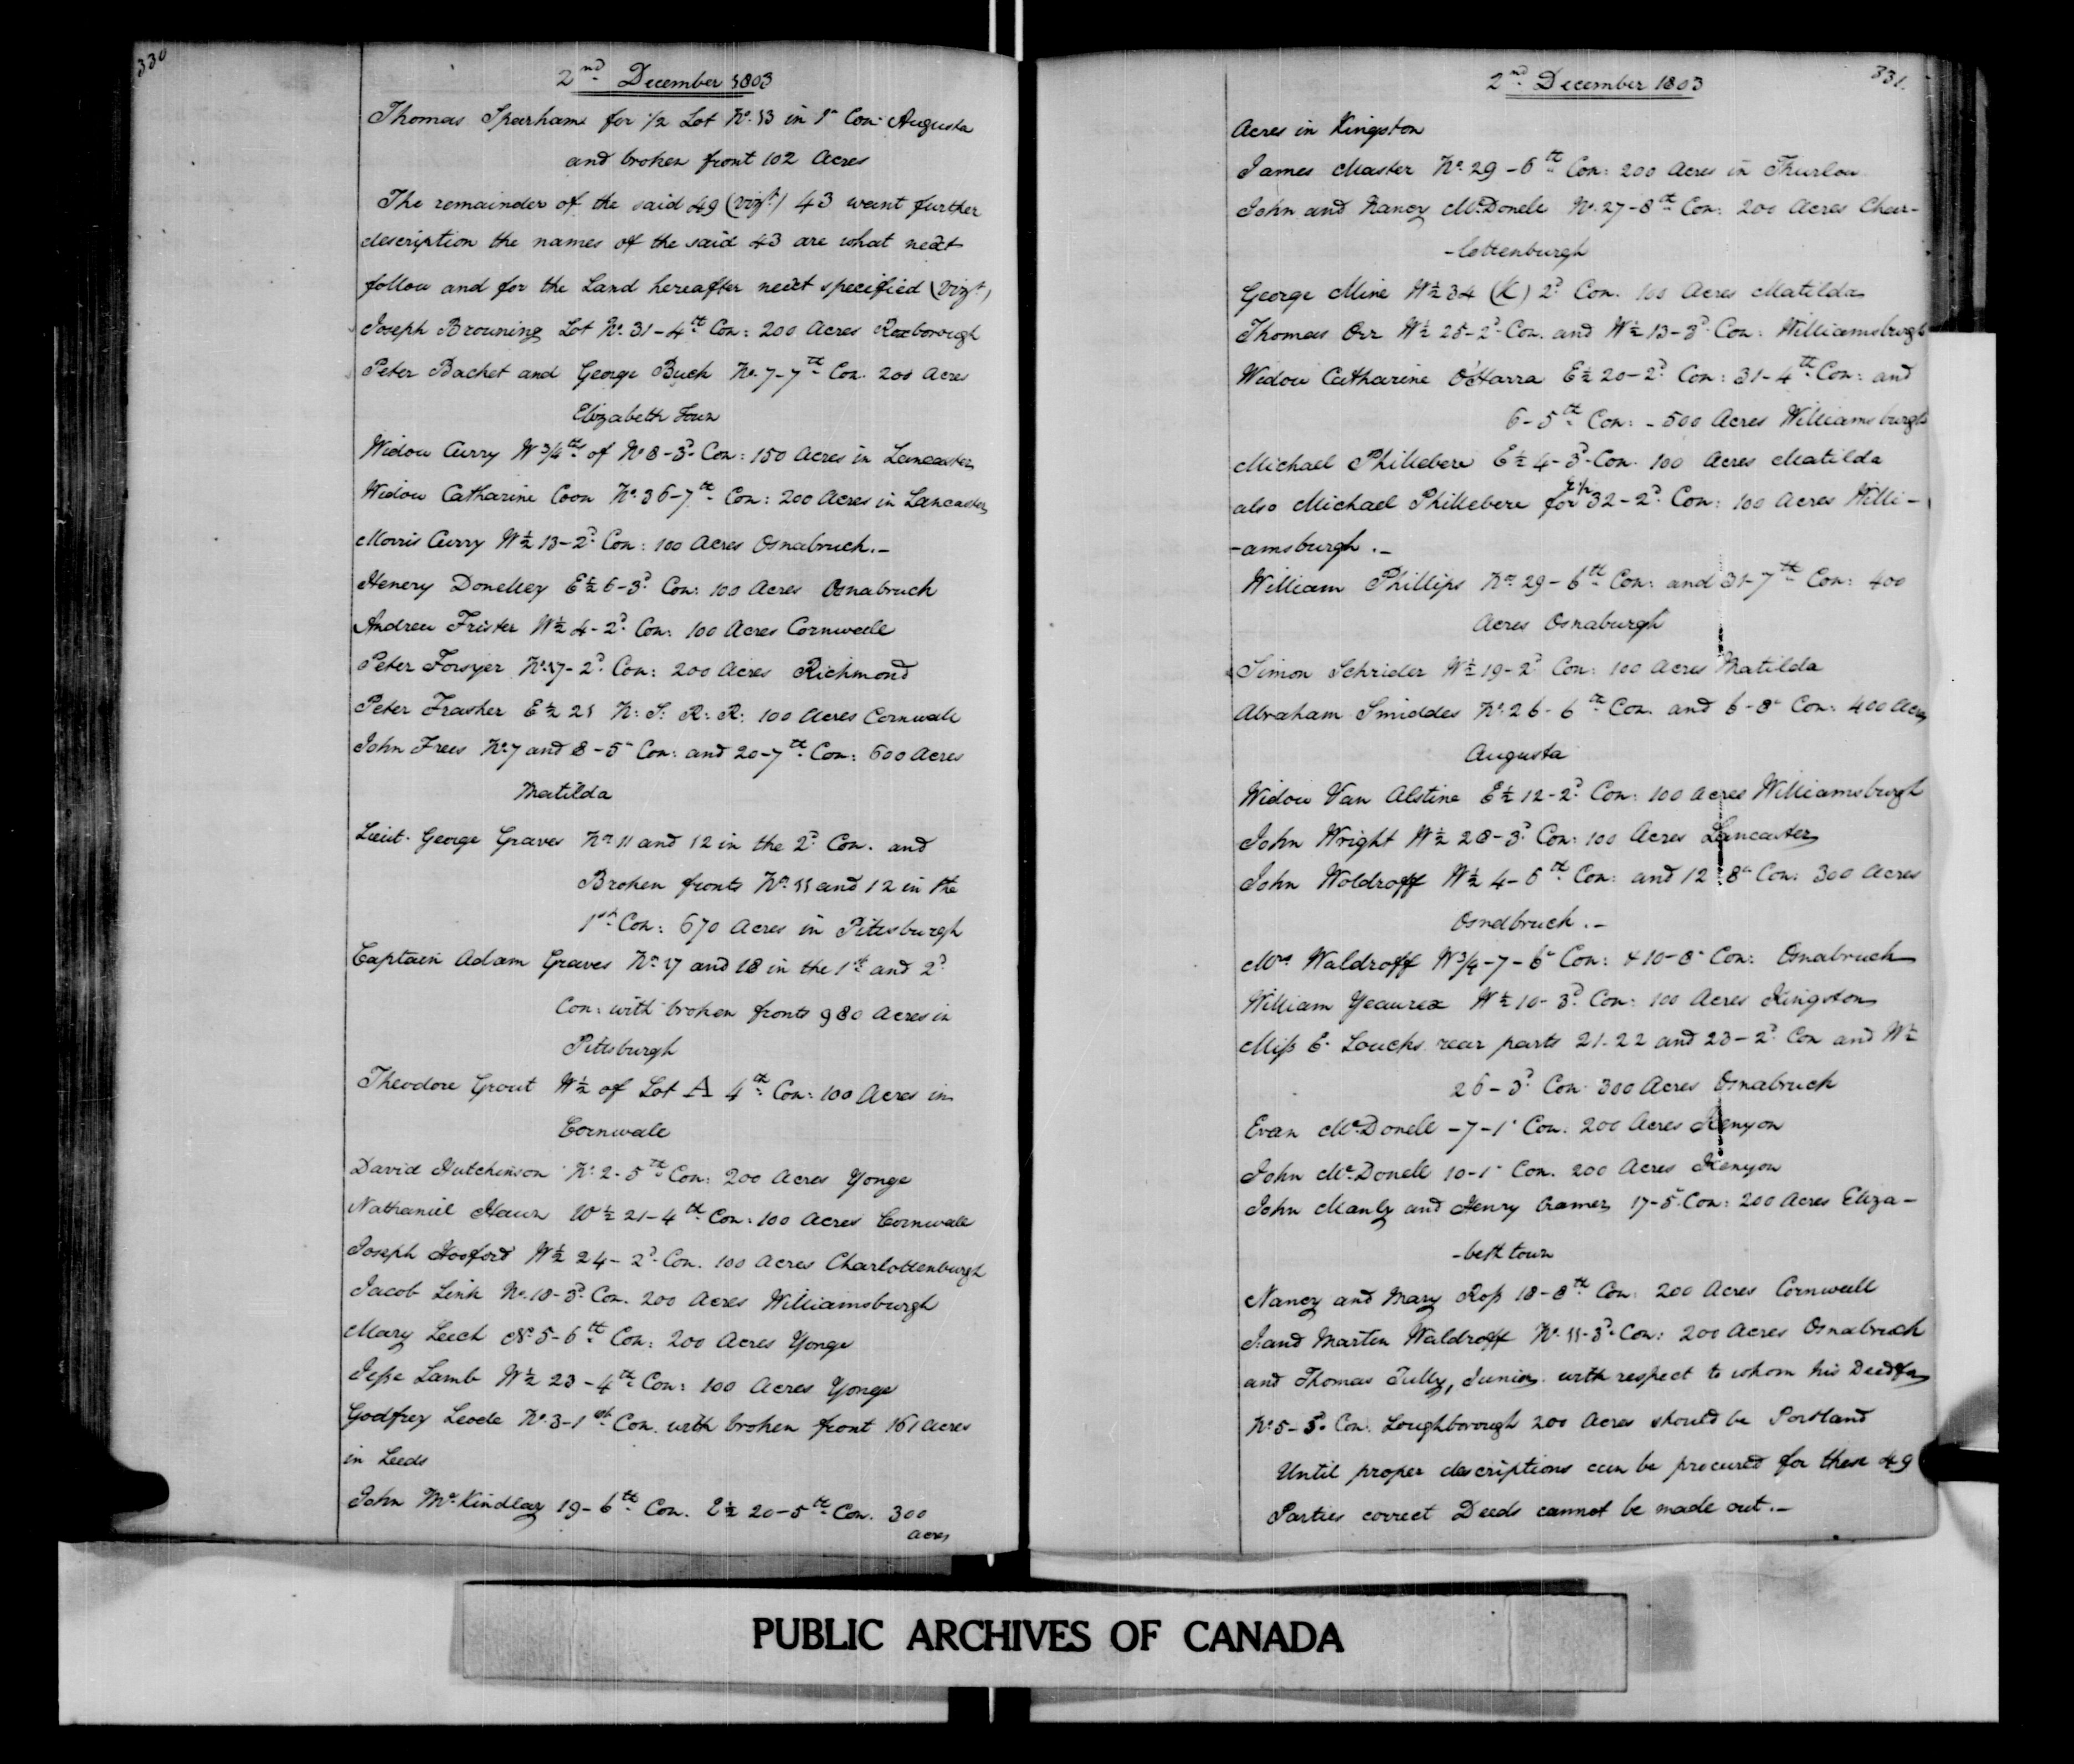 330
2nd December 1803
Thomas Sparham for 1/2 Lot No. 13 in 1st Con: Augusta
and broken front 102 Acres
The remainder of the said 49 (vizt) 43 want further
description the names of the said 43 are what next
follow and for the Land hereafter next specified (vizt)
Joseph Browning Lot No. 31-4th Con: 200 Acres Roxborough
Peter Bachet and George Buck No. 7-7th Con. 200 Acres
Elizabeth Town
Widow Curry W 3/4th of No 8-3d Con: 150 Acres in Lancaster
Widow Catharine Coon No. 36-7th Con: 200 Acres in Lancaster
Morris Curry W½ 13-2d Con: 100 Acres Osnabruck.-
Henery Donelley E½ 6-3d Con: 100 Acres Osnabruck
Andrew Frister W½ 4-2d Con: 100 Acres Cornwall
Peter Forsyer No. 17-2d Con: 200 Acres Richmond
Peter Frasher E½ 21 N: S: R: R: 100 Acres Cornwall
John Frees No. 7 and 8-5th Con: and 20-7th Con: 600 Acres
Matilda
Lieut. George Graves Nos 11 and 12 in the 2d Con. and
Broken fronts Nos 11 and 12 in the
1st Con: 670 Acres in Pittsburgh
Captain Adam Graves Nos 17 and 18 in the 1st and 2d
Con: with broken fronts 980 Acres in
Pittsburgh
Theodore Grout W½ of Lot A 4th Con: 100 Acres in
Cornwall
David Hutchinson No. 2-5th Con: 200 Acres Yonge
Nathaniel Hawn W½ 21-4th Con: 100 Acres Cornwall
Joseph Hosford W½ 24-2d Con. 100 Acres Charlottenburgh
Jacob Link No. 18-3d Con. 200 Acres Williamsburgh
Mary Leech No 5-6th Con: 200 Acres Yonge
Jesse Lamb W½ 23-4th Con: 100 Acres Yonge
Godfrey Leode No. 3-1st Con. with broken front 161 Acres
in Leeds
John McKindlay 19-6th Con. E½ 20-5th Con. 300
acres
2nd December 1803
331.
Acres in Kingston
James Master No. 29-6th Con: 200 Acres in Thurlow
John and Nancy McDonell No. 27-8th Con: 200 Acres Char-
-lottenburgh
George Mine W½ 34 (K) 2d Con. 100 Acres Matilda
Thomas Orr W½ 25-2d Con. and W½ 13-3d Con: Williamsburgh
Widow Catharine O'Harra E½ 20-2d Con: 31-4th Con: and
6-5th Con: - 500 Acres Williamsburgh
Michael Phillebere E½ 4-3d Con. 100 Acres Matilda
also Michael Phillebere for E ½ 32-2d Con: 100 Acres Willi-
-amsburgh.-
William Phillips Nos 29-6th Con: and 31-7th Con: 400
Acres Osnaburgh
Simon Schrider W½ 19-2d Con: 100 Acres Matilda
Abraham Smiddes No. 26-6th Con. and 6-8th Con: 400 Acres
Augusta
Widow Van Alstine E½ 12-2d Con: 100 Acres Williamsburgh
John Wright W½ 28-3d Con: 100 Acres Lancaster
John Woldroff W½ 4-6th Con: and 12 8th Con: 300 Acres
Osnabruck.-
Mrs Waldroff W 3/4-7-6th Con: & 10-8th Con: Osnabruck
William Yeaurex W½ 10-3d Con: 100 Acres Kingston
Miss E. Loucks rear parts 21-22 and 23-2d Con and W½
26-3d Con 300 Acres Osnabruck
Evan McDonell -7-1st Con: 200 Acres Kenyon
John McDonell 10-1st Con. 200 Acres Kenyon
John Manly and Henry Cramer 17-5 Con: 200 Acres Eliza-
-beth town
Nancy and Mary Ross 18-8th Con: 200 Acres Cornwall
J. and Marten Waldroff No. 11-3d Con: 200 Acres Osnabruck
and Thomas Tully, Junior with respect to whom his Deed for
No. 5-5 Con: Loughborough 200 Acres should be Portland
Until proper descriptions can be procured for these 49
Parties correct Deeds cannot be made out.-
PUBLIC ARCHIVES OF CANADA